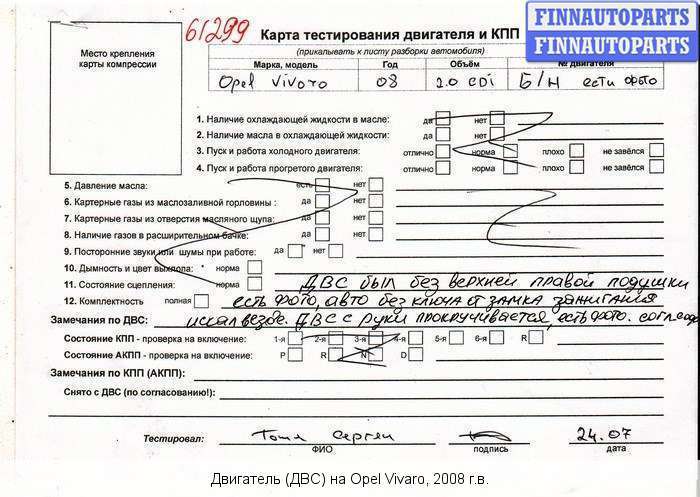 61299
FINNAUTOPARTS
FINNAUTOPARTS
Место крепления
карты компрессии
Карта тестирования двигателя и КПП
(прикалывать к листу разборки автомобиля)
Марка, модель Год Объём № двигателя
Opel Vivaro 08 2.0 CDI Б/н есть фото
1. Наличие охлаждающей жидкости в масле: да нет
2. Наличие масла в охлаждающей жидкости: да нет
3. Пуск и работа холодного двигателя: отлично норма плохо не завёлся
4. Пуск и работа прогретого двигателя: отлично норма плохо не завёлся
5. Давление масла: есть нет
6. Картерные газы из маслозаливной горловины : да нет
7. Картерные газы из отверстия масляного щупа: да нет
8. Наличие газов в расширительном бачке: да нет
9. Посторонние звуки или шумы при работе: да нет
10. Дымность и цвет выхлопа: норма
11. Состояние сцепления: норма ДВС был без верхней правой подушки
12. Комплектность полная есть фото, авто без ключа от замка зажигания
Замечания по ДВС: искал везде. ДВС с руки прокручивается, есть фото.
Состояние КПП - проверка на включение: 1-я 2-я 3-я 4-я 5-я 6-я R
Состояние АКПП - проверка на включение: P R N D
Замечания по КПП (АКПП):
Снято с ДВС (по согласованию!):
Тестировал: Сергей 24.07
ФИО подпись дата
Двигатель (ДВС) на Opel Vivaro, 2008 г.в.